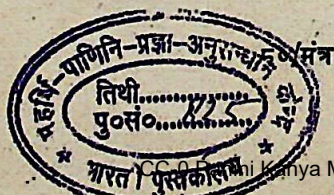 महर्षि-पाणिनि-प्रज्ञा-अनुसन्धान
/मंत्र
तिथी..............
पु०सं०....
भारत। पुस्तकालय
CC-0.Panini Kanya M